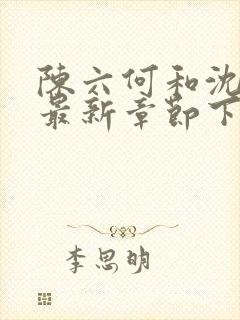 陳六何和沈
最新章節下
李思明